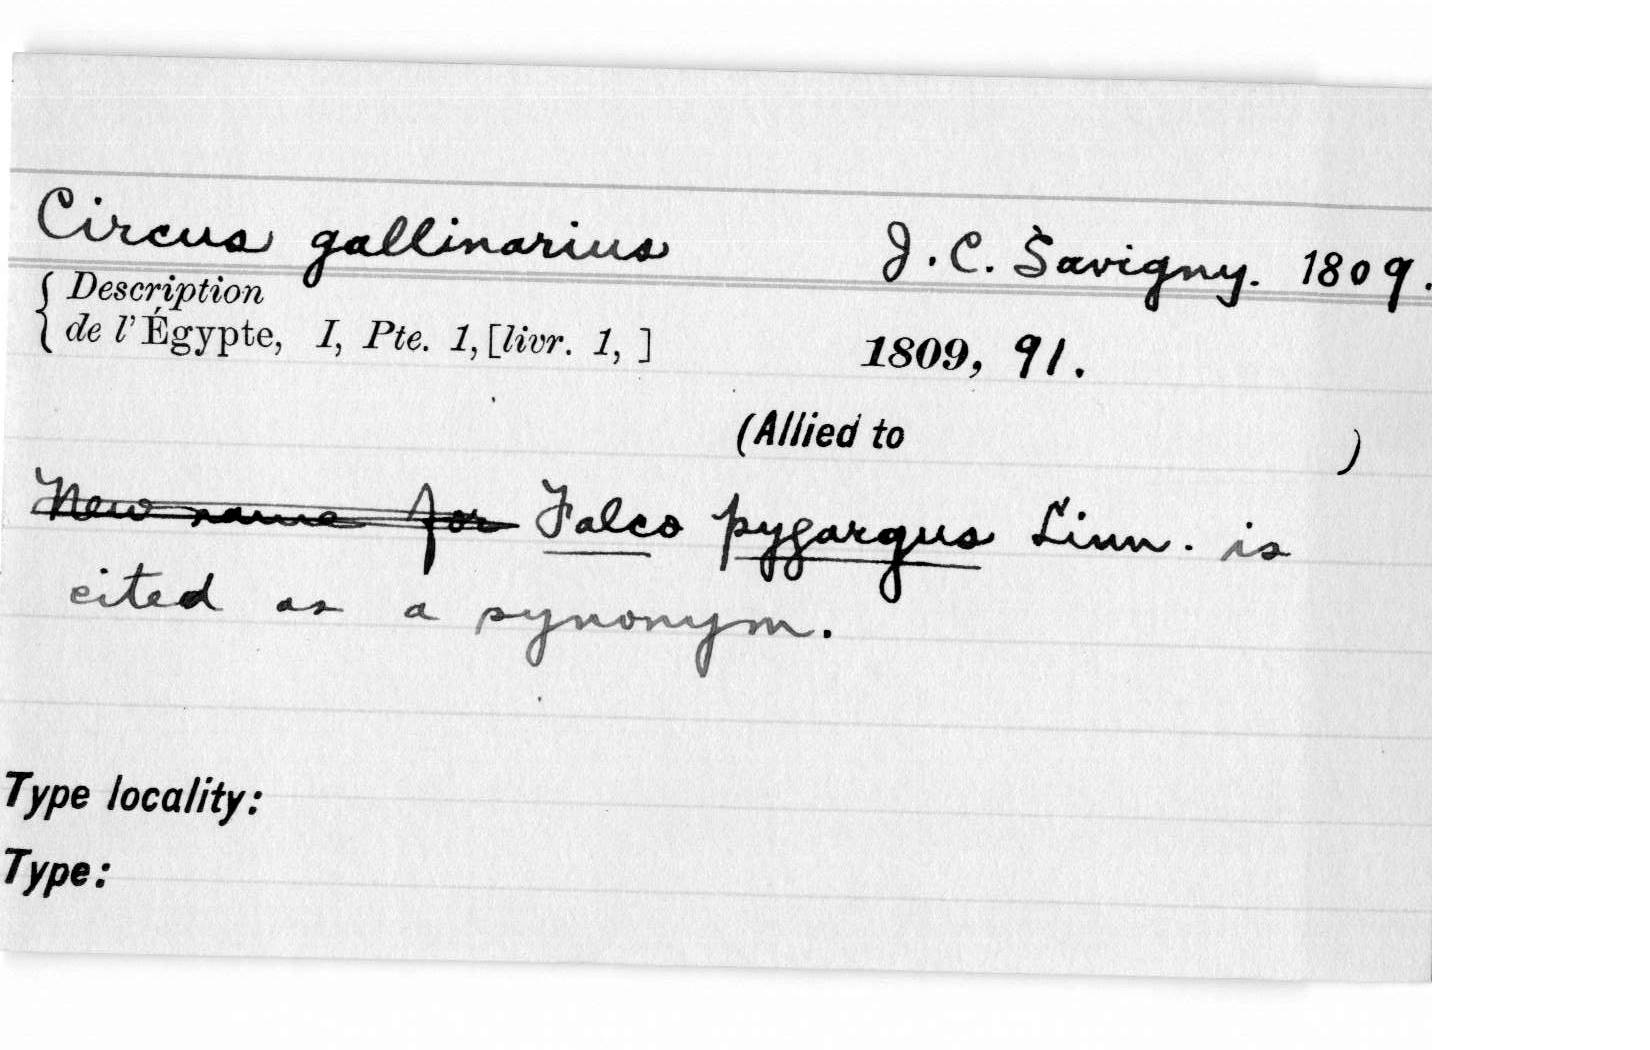 Circus gallinarius J. C. Savigny. 1809.
Description
de l'Égypte, I, Pte. 1, [livr. 1, ] 1809, 91.
(Allied to )
New name for Falco pygargus Linn. is
cited as a synonym.
Type locality:
Type: